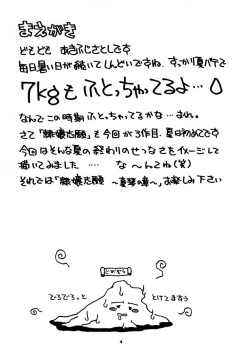 まえがき
どもども あきふじさとしです
毎日暑い日が続いてしんどいですね すっかり夏バテで
7kgもふとっちゃってるよ…
なんでこの時期ふとってるかな…まれ。
さて「隷嬢志願」も今回が3作目。夏は初めてです
今回はそんな夏の終わりのせつなさをイメージして
描いてみました …… な〜んてね(笑)
それでは「隷嬢志願 〜真琴の章〜」お楽しみ下さい
じがぞう
でろでろっと
とけてますぅ
4